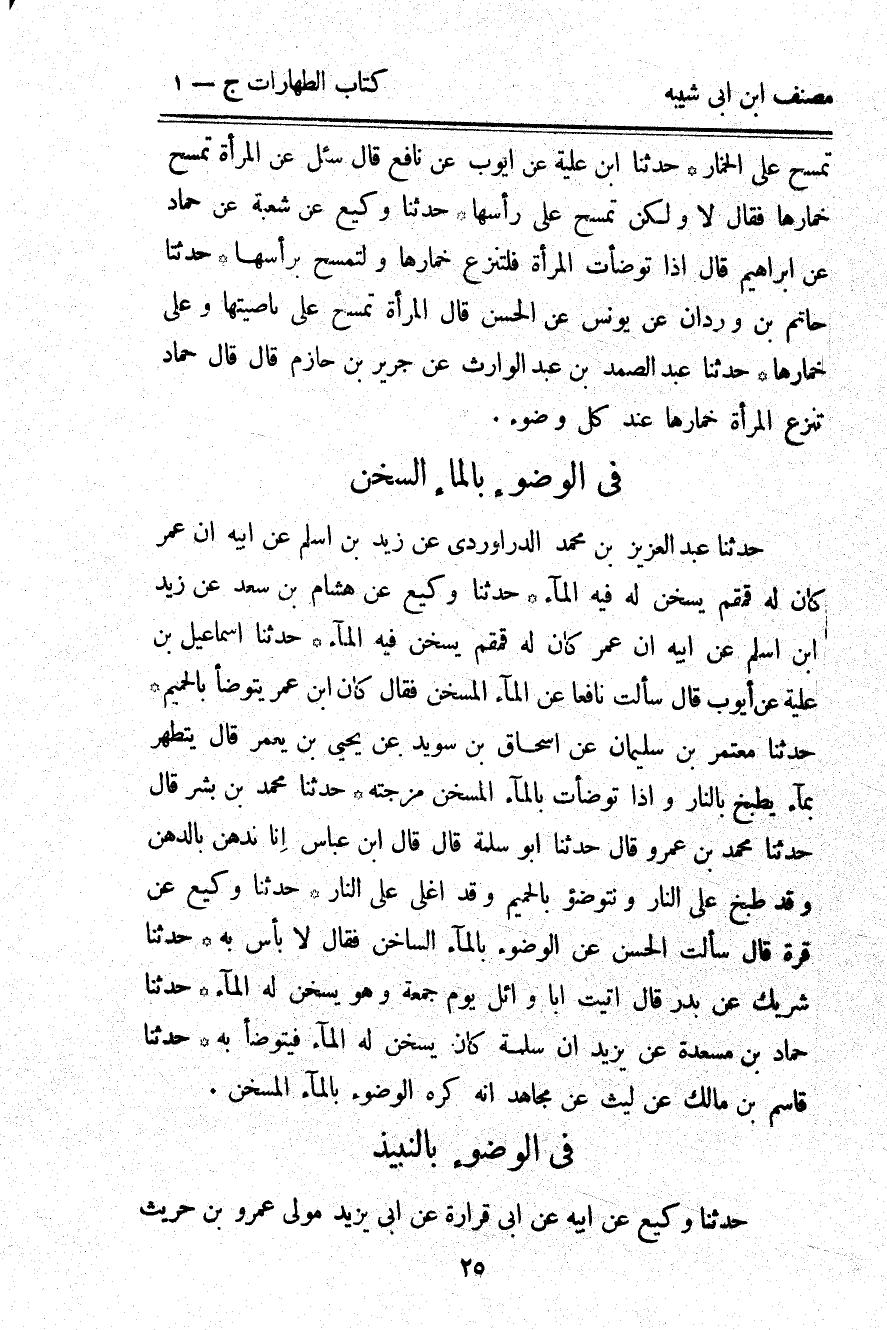 مصنف ابن ابى شيبه كتاب الطهارات ج — ١
تمسح على الخمار * حدثنا ابن علية عن ايوب عن نافع قال سئل عن المرأة تمسح
خمارها فقال لا و لكن تمسح على رأسها * حدثنا وكيع عن شعبة عن حماد
عن ابراهيم قال اذا توضأت المرأة فلتنزع خمارها و لتمسح برأسها * حدثنا
حاتم بن وردان عن يونس عن الحسن قال المرأة تمسح على ناصيتها و على
خمارها * حدثنا عبد الصمد بن عبد الوارث عن جرير بن حازم قال قال حماد
تنزع المرأة خمارها عند كل وضوء .
فى الوضوء بالماء السخن
حدثنا عبد العزيز بن محمد الدراوردى عن زيد بن اسلم عن ابيه ان عمر
كان له قمقم يسخن له فيه المآء * حدثنا وكيع عن هشام بن سعد عن زيد
ابن اسلم عن ابيه ان عمر كان له قمقم يسخن فيه المآء * حدثنا اسماعيل بن
علية عن أيوب قال سألت نافعا عن المآء المسخن فقال كان ابن عمر يتوضأ بالحميم *
حدثنا معتمر بن سليمان عن اسحاق بن سويد عن يحيى بن يعمر قال يتطهر
بمآء يطبخ بالنار و اذا توضأت بالمآء المسخن مزجته * حدثنا محمد بن بشر قال
حدثنا محمد بن عمرو قال حدثنا ابو سلمة قال قال ابن عباس إنا ندهن بالدهن
و قد طبخ على النار و نتوضؤ بالحميم و قد اغلى على النار * حدثنا وكيع عن
قرة قال سألت الحسن عن الوضوء بالمآء الساخن فقال لا بأس به * حدثنا
شريك عن بدر قال اتيت ابا وائل يوم جمعة و هو يسخن له المآء * حدثنا
حماد بن مسعدة عن يزيد ان سلمة كان يسخن له المآء فيتوضأ به * حدثنا
قاسم بن مالك عن ليث عن مجاهد انه كره الوضوء بالمآء المسخن .
فى الوضوء بالنبيذ
حدثنا وكيع عن ابيه عن ابى قرارة عن ابى يزيد مولى عمرو بن حريث
٢٥